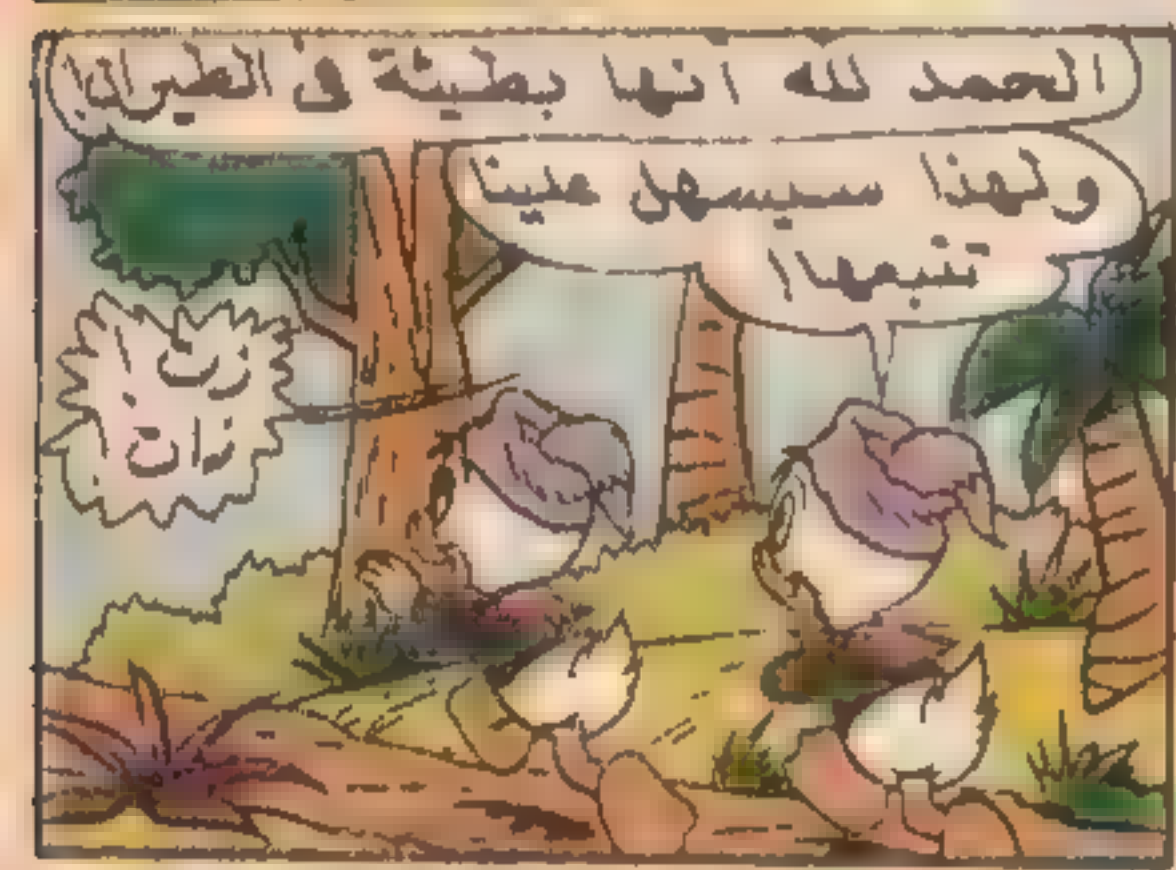 الحمد لله انها بطيئة فى الطيران!
ولهذا سيسهل علينا
تتبعها!
زن
زان